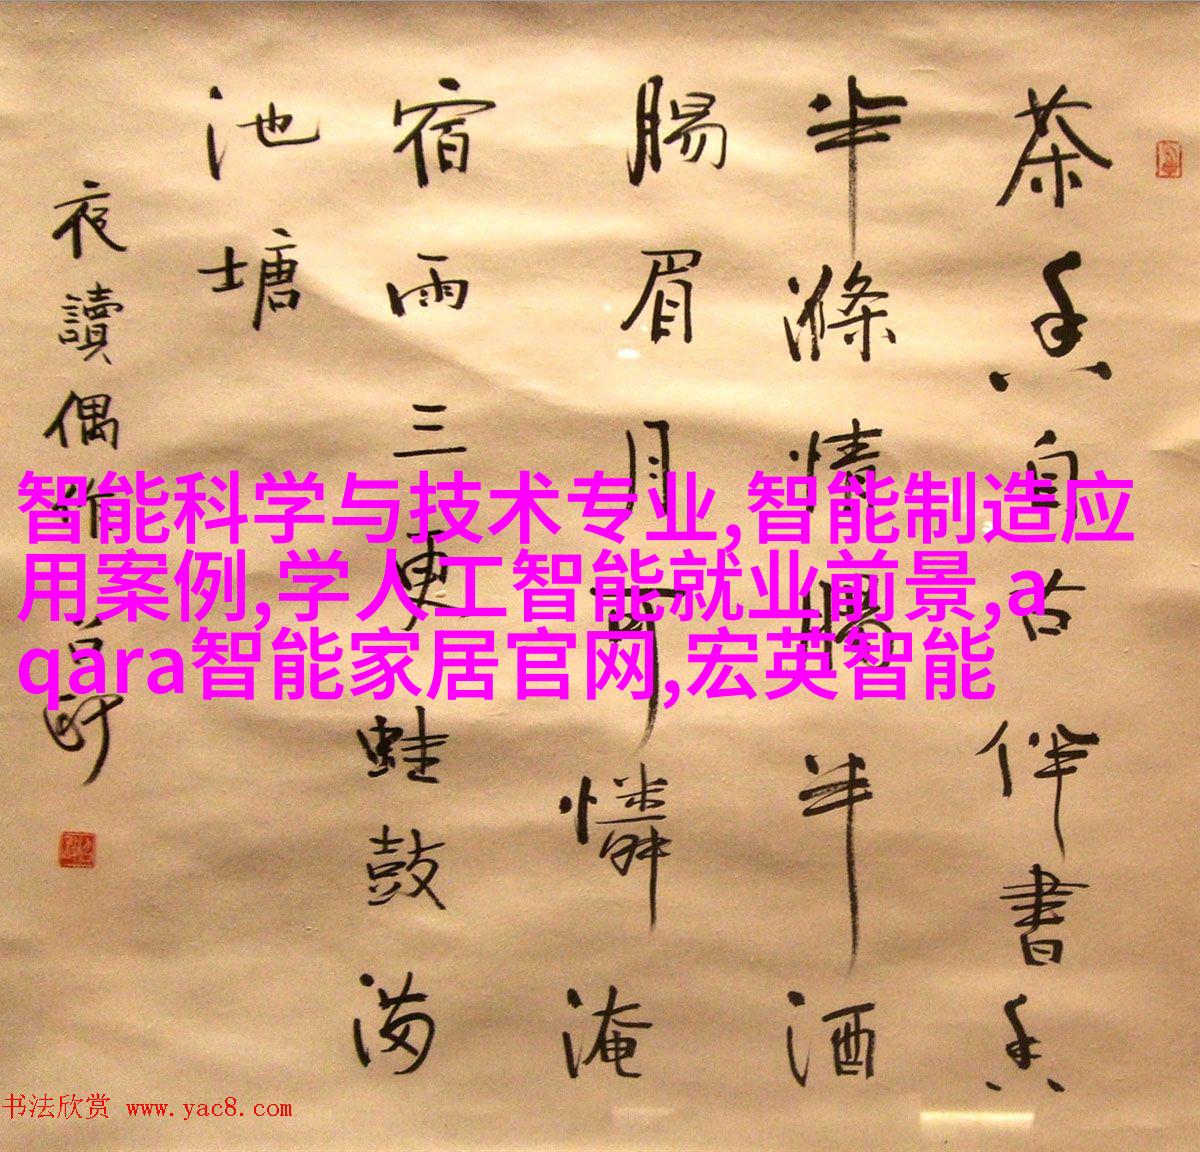 茶香自古伴書香
半滌情腸半酒
腸眉月可憐淹
宿雨三更蛙鼓满
池塘
夜讀偶作
智能科学与技术专业,智能制造应
用案例,学人工智能就业前景,a
qara智能家居官网,宏英智能
书法欣赏 www.yac8.com